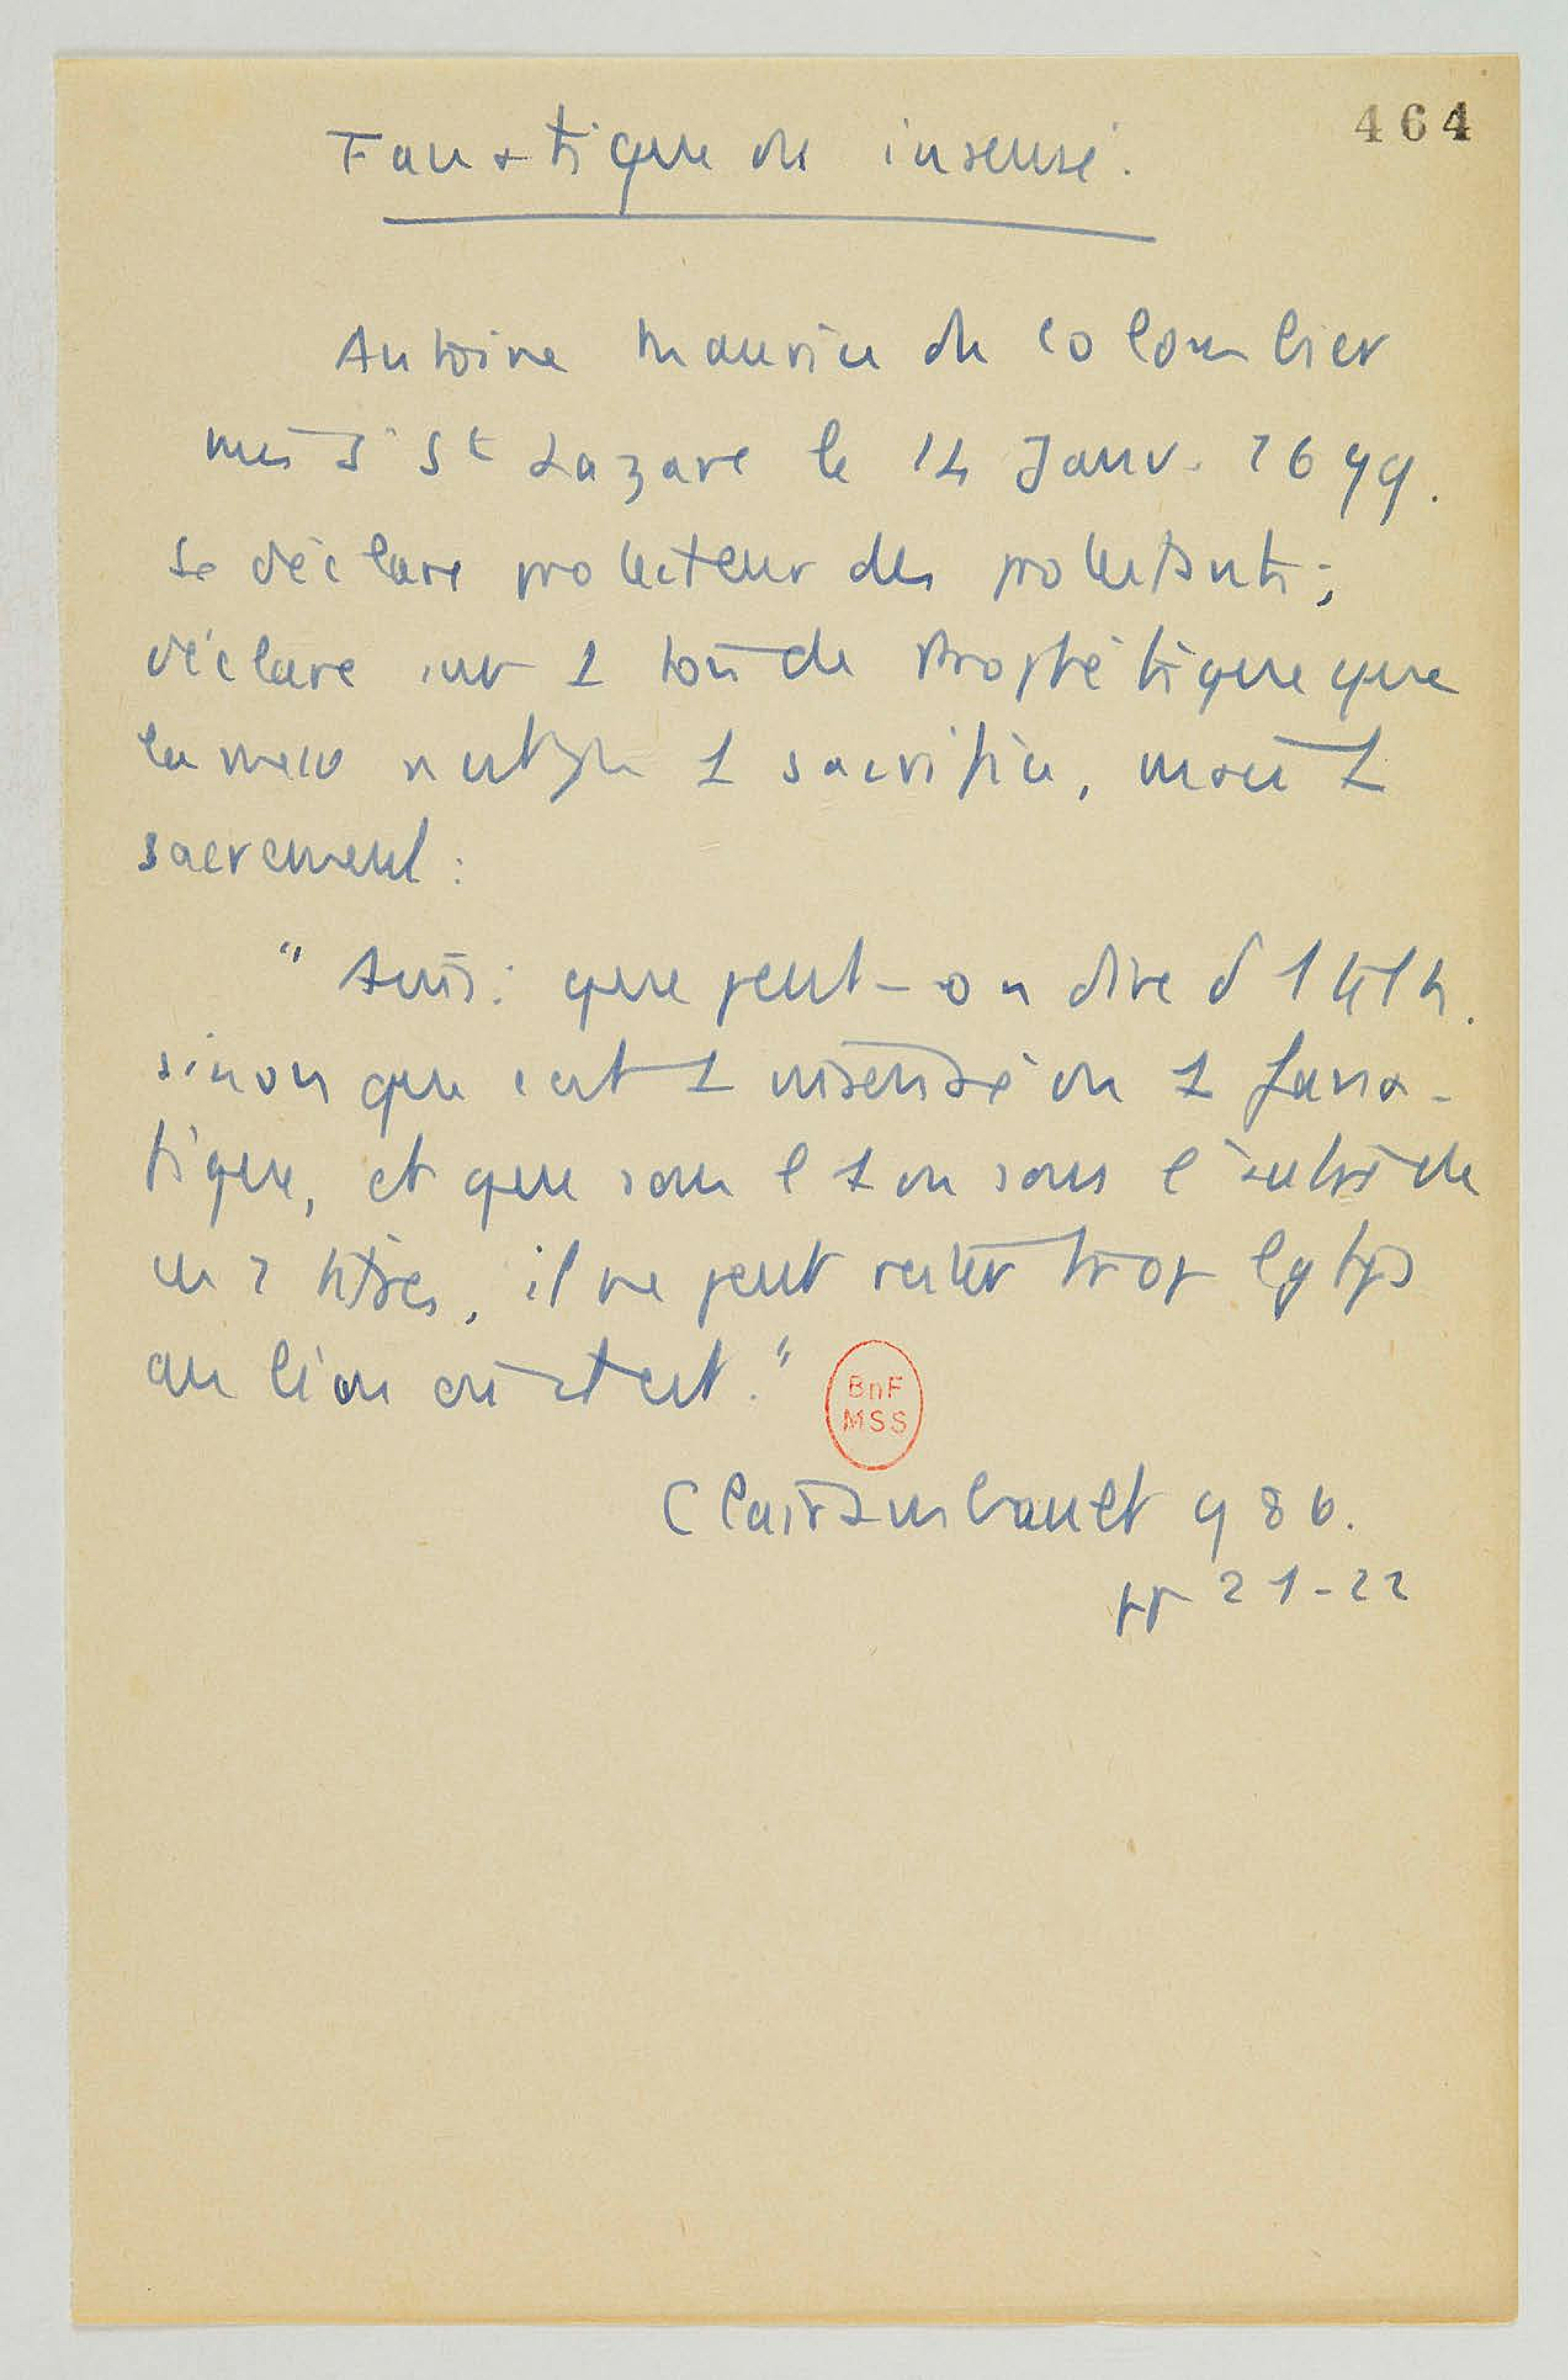 464
Fanatique ou insensé.
Antoine Maurice de Colombier
mis à St Lazare le 14 Janv. 1699.
Se déclare protecteur des protestants ;
déclare sur 1 ton de prophétique que
la messe n'est pas 1 sacrifice, mais 1
sacrement :
" Ainsi que peut-on dire d 1 tel h.
sinon que c'est 1 insensé ou 1 fana-
tique, et que sous l 1 ou sous l'autre de
ces 2 titres, il ne peut rester trop lgtps
au lieu où il est."
BnF
MSS
Clairambault 986.
pp 21-22